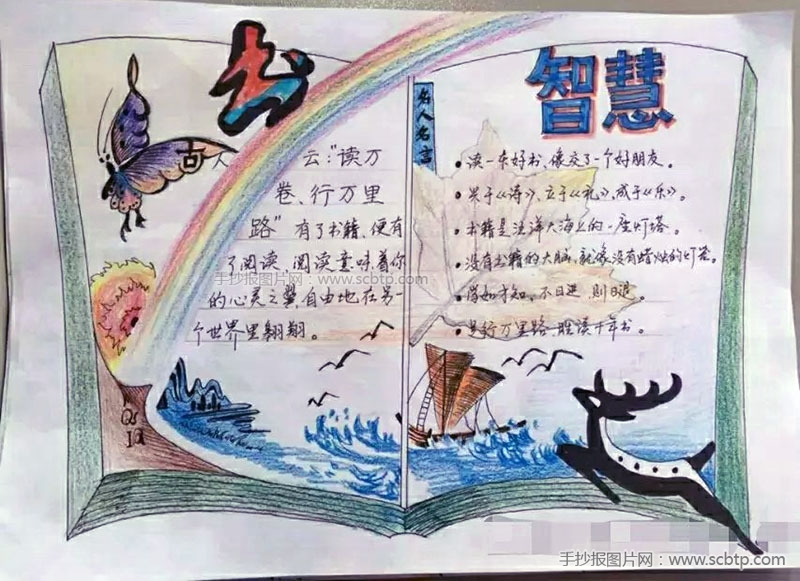 书
古人云:"读万
卷、行万里
路"有了书籍,便有
了阅读,阅读意味着你
的心灵之翼,自由地在另一
个世界里翱翔。
智慧
名人名言
读一本好书,像交了一个好朋友。
兴于《诗》、立于《礼》,成于《乐》。
书籍是茫茫大海上的一座灯塔。
没有书籍的大脑,就像没有蜡烛的灯笼。
不日进,则日退。
行万里路,胜读千年书。
手抄报图片网:www.scbtp.com
手抄报图片网
scbtp.com
手抄报图片网
scbtp.com